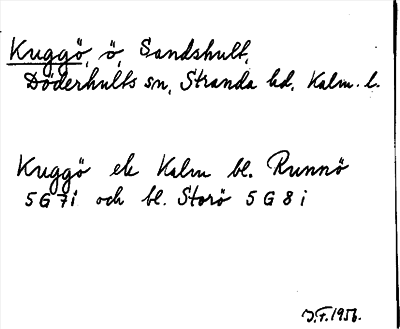 Kuggö, ö, Sandshult,
Döderhults sn, Stranda hd, Kalm. l.
Kuggö ek Kalm bl. Runnö
5 G 7 i och bl. Storö 5 G 8 i
J.F. 1956.